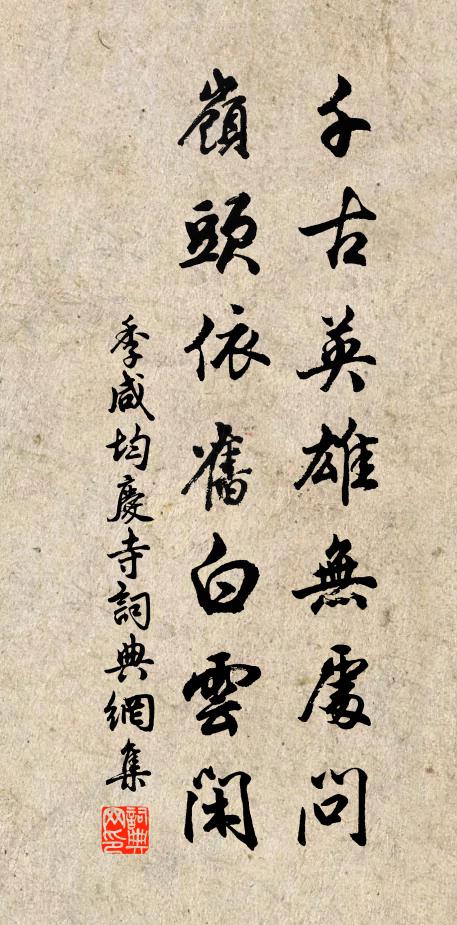 千古英雄無處問
嶺頭依舊白雲閑
季咸均慶寺詞典網集
詞典网印